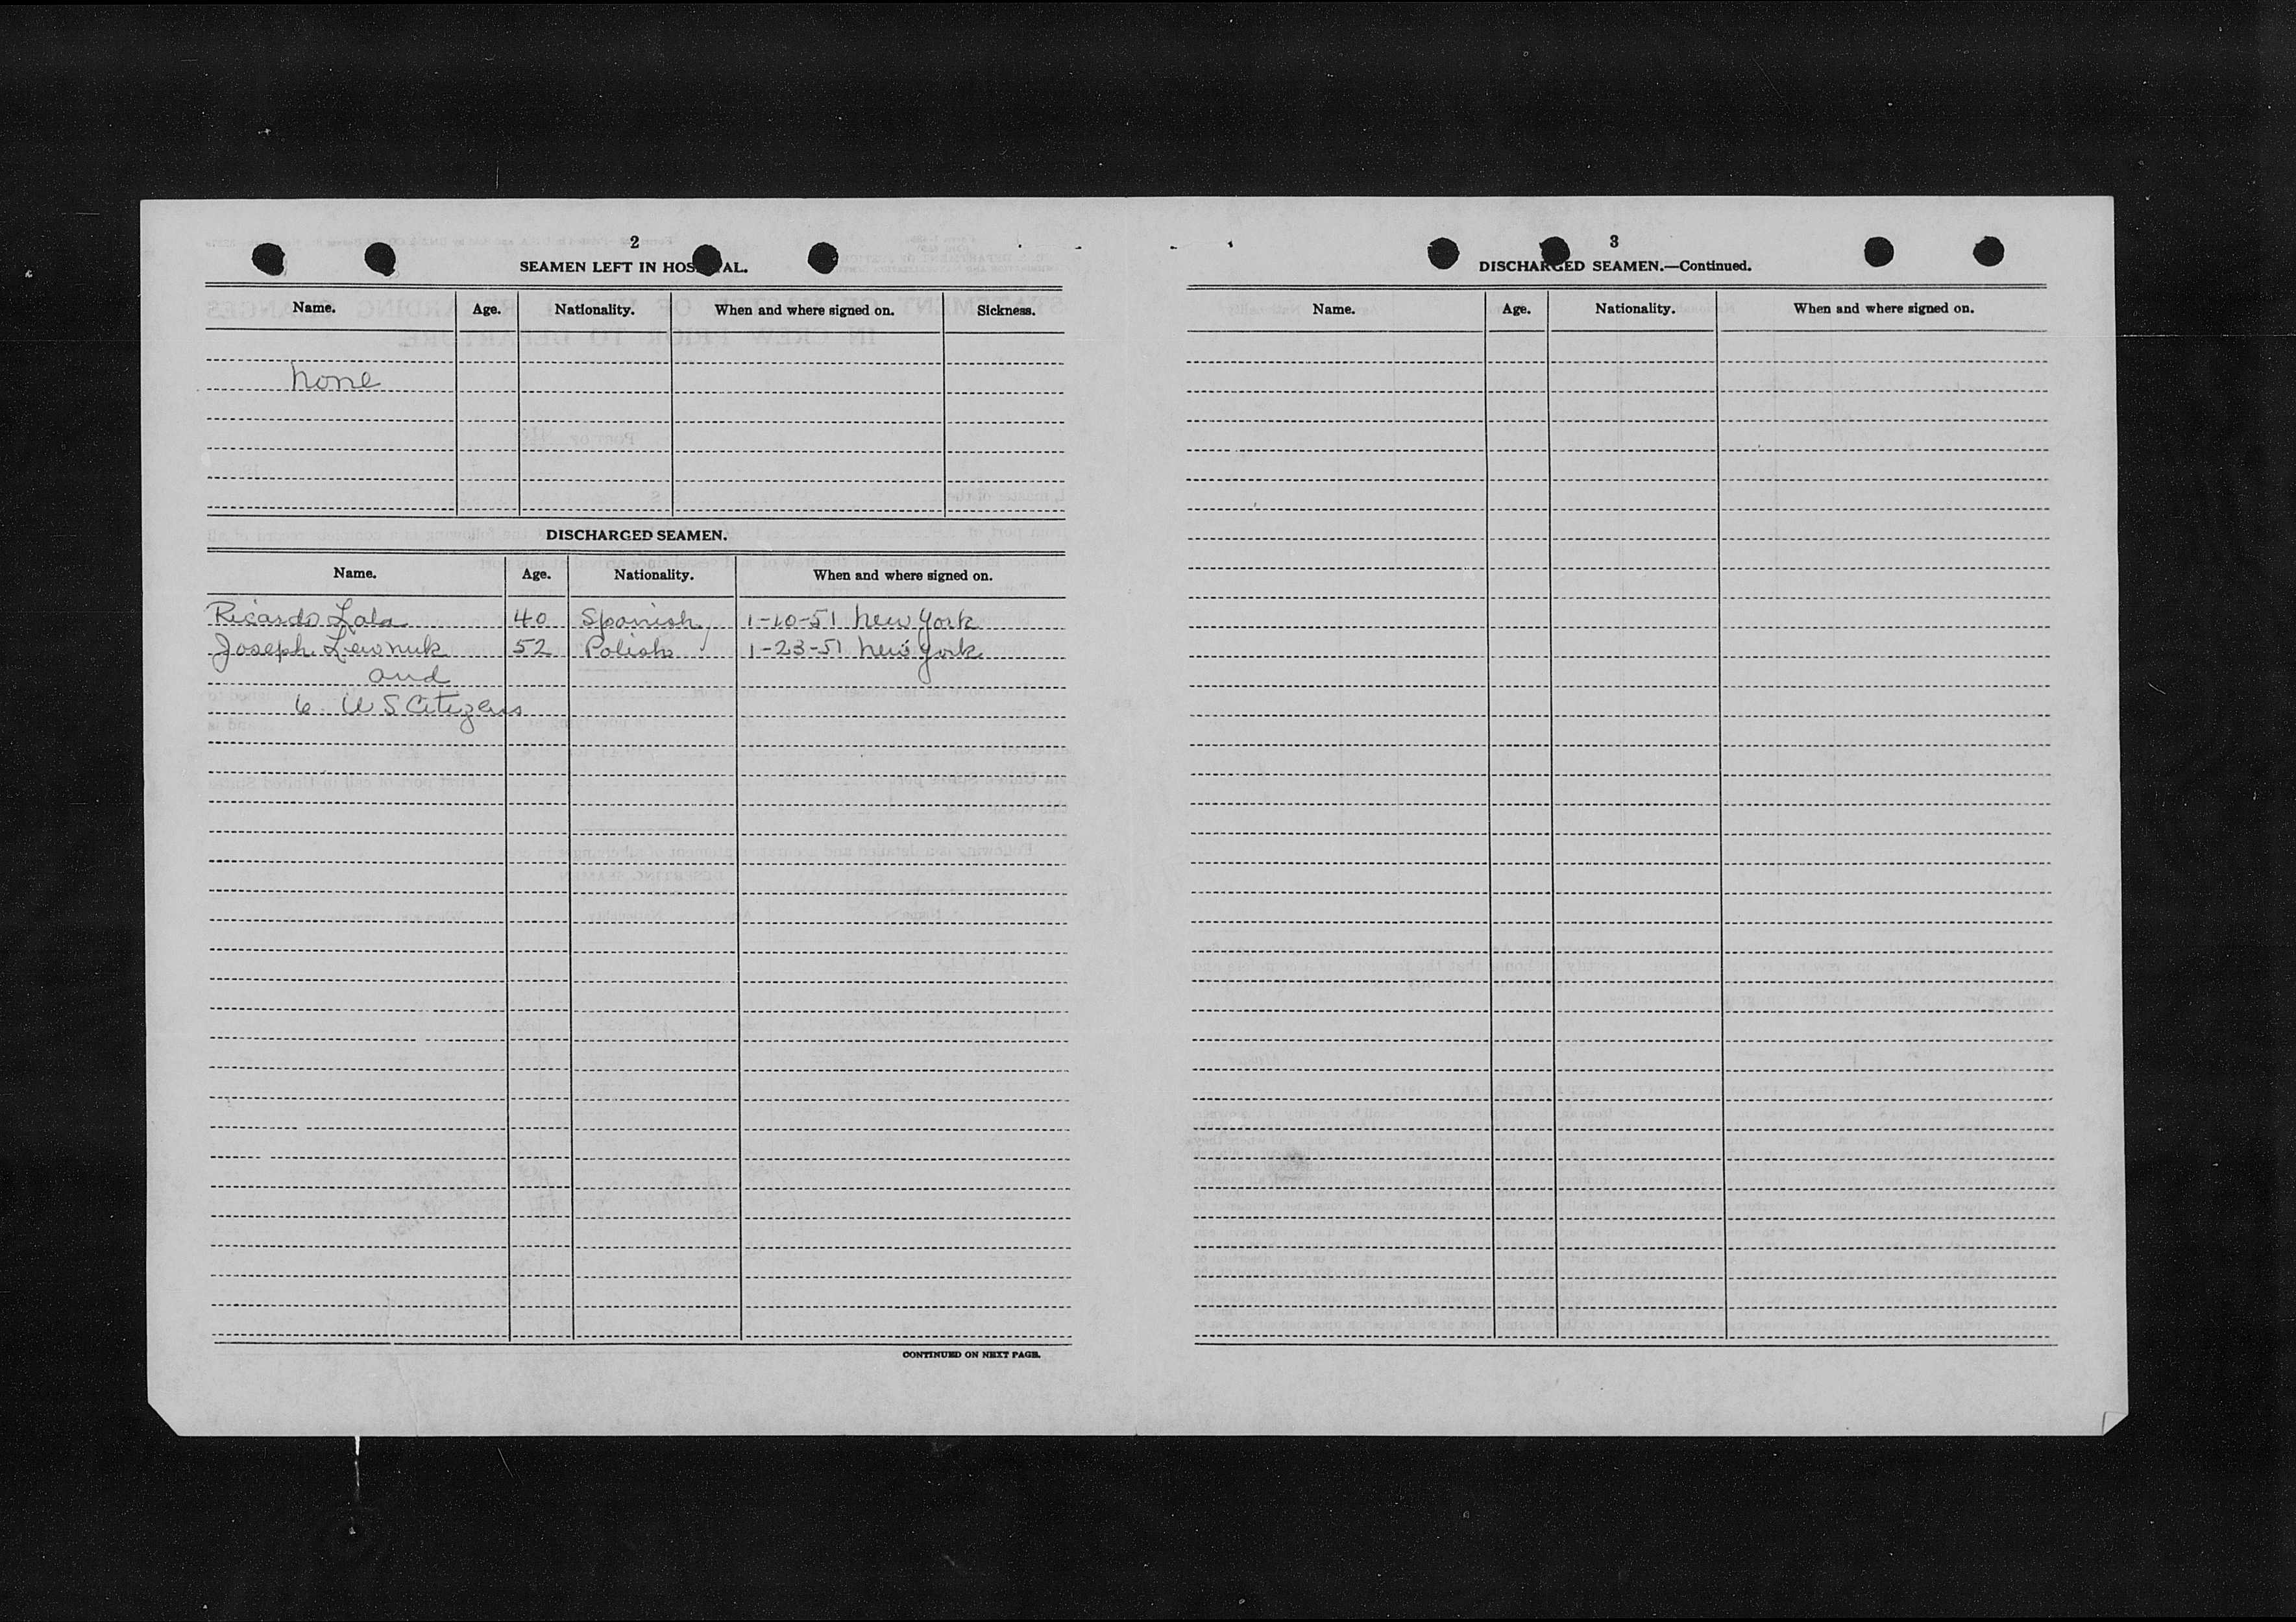 2
SEAMEN LEFT IN HOS AL.
Name. Age. Nationality. When and where signed on. Sickness.
None
DISCHARGED SEAMEN.
Name. Age. Nationality. When and where signed on.
Ricardo Lala 40 Spanish 1-10-51 New York
Joseph Lewnuk 52 Polish 1-23-51 New York
and
6 U S Citizens
CONTINUED ON NEXT PAGE.
3
DISCHARGED SEAMEN.—Continued.
Name. Age. Nationality. When and where signed on.